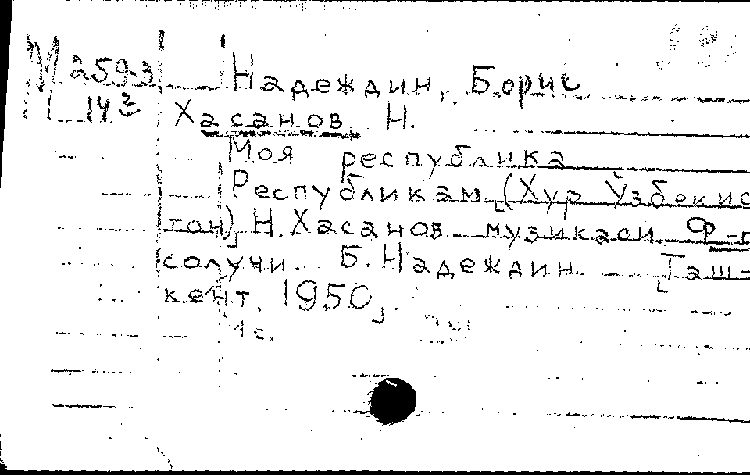 М 259-3
14²
Надеждин, Борис
Хасанов, Н.
Моя республика
Республикам (Хур Ўзбекис
тон) Н. Хасанов музикаси. Ф-п
солучи Б. Надеждин. Таш-
кент, 1950,
1 с.